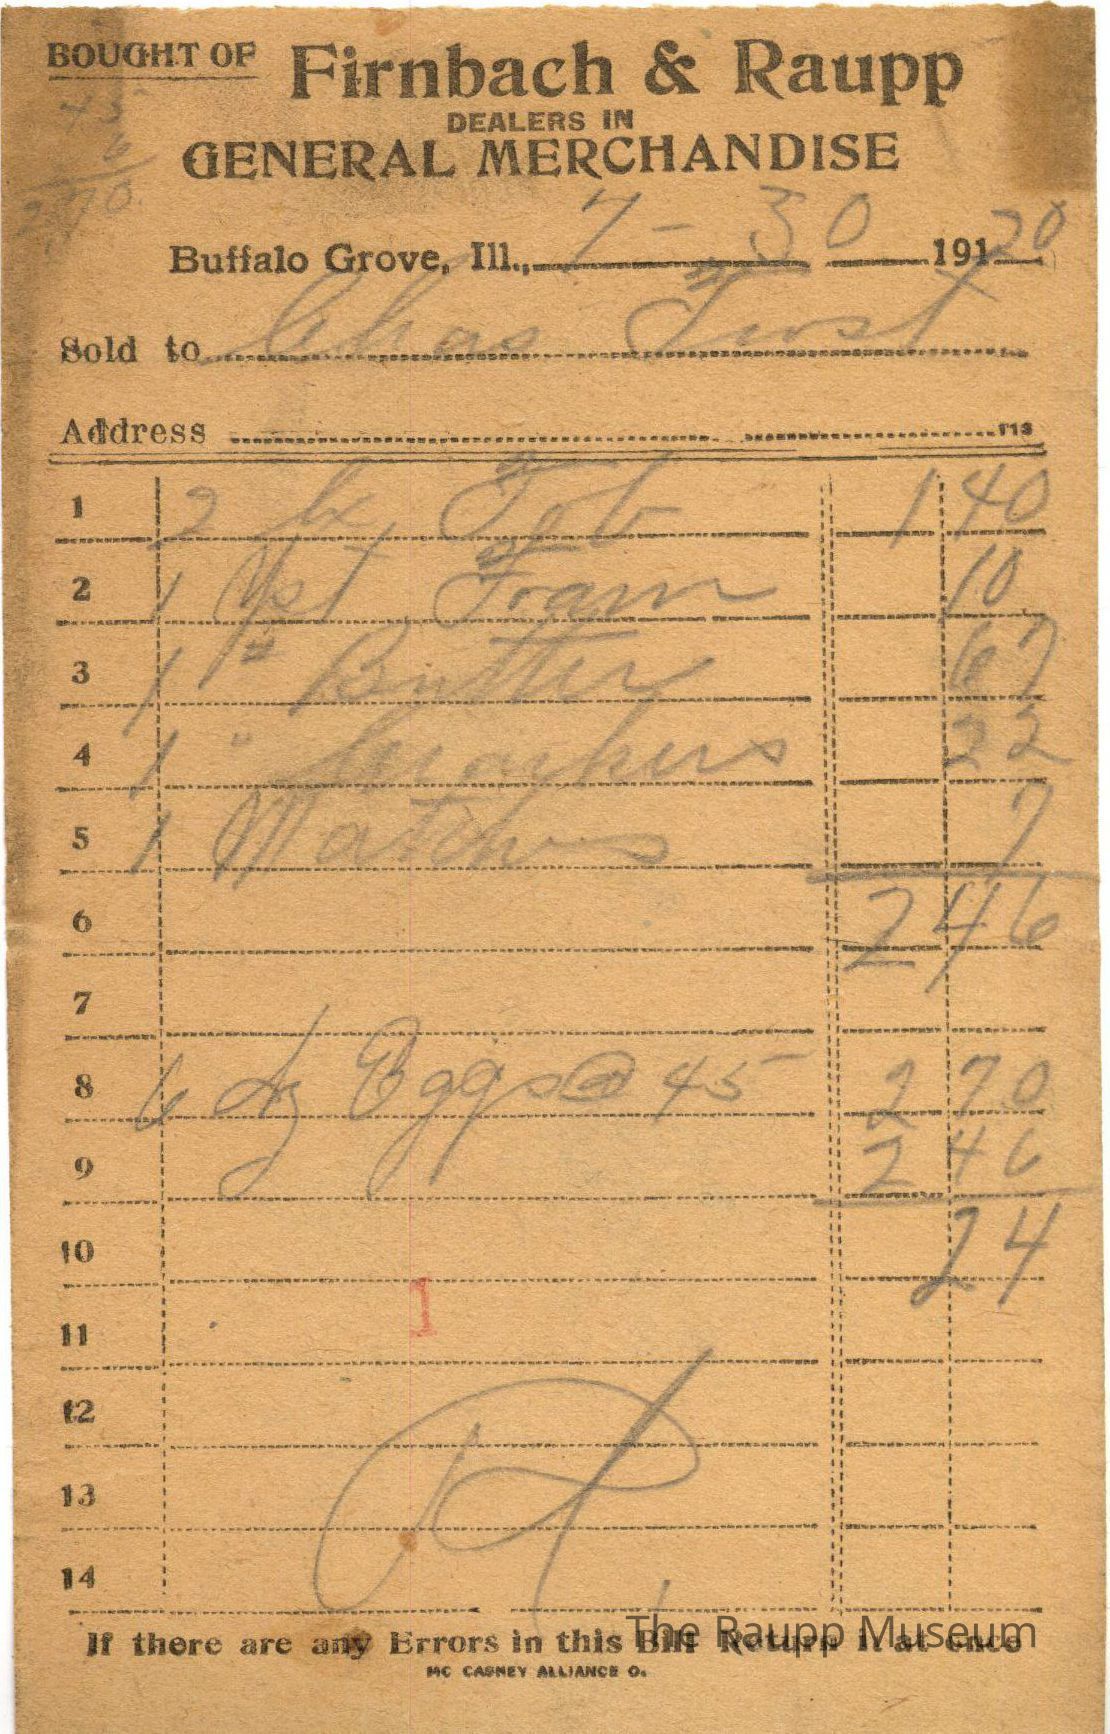 BOUGHT OF Firnbach & Raupp
45
6
270
DEALERS IN
GENERAL MERCHANDISE
Buffalo Grove, Ill., 7-30 191 20
Sold to Chas
Address 113
1 2 Tob 1 40
2 1 Yst Foam 10
3 1 # Butter 67
4 1 " 22
5 1 Matches 7
6 2 46
7
8 6 dz Eggs @ 45 2 70
9 2 46
10 24
11
12
13
14
1
If there are any Errors in this Bill Return it at once
MC CASKEY ALLIANCE O.
The Raupp Museum